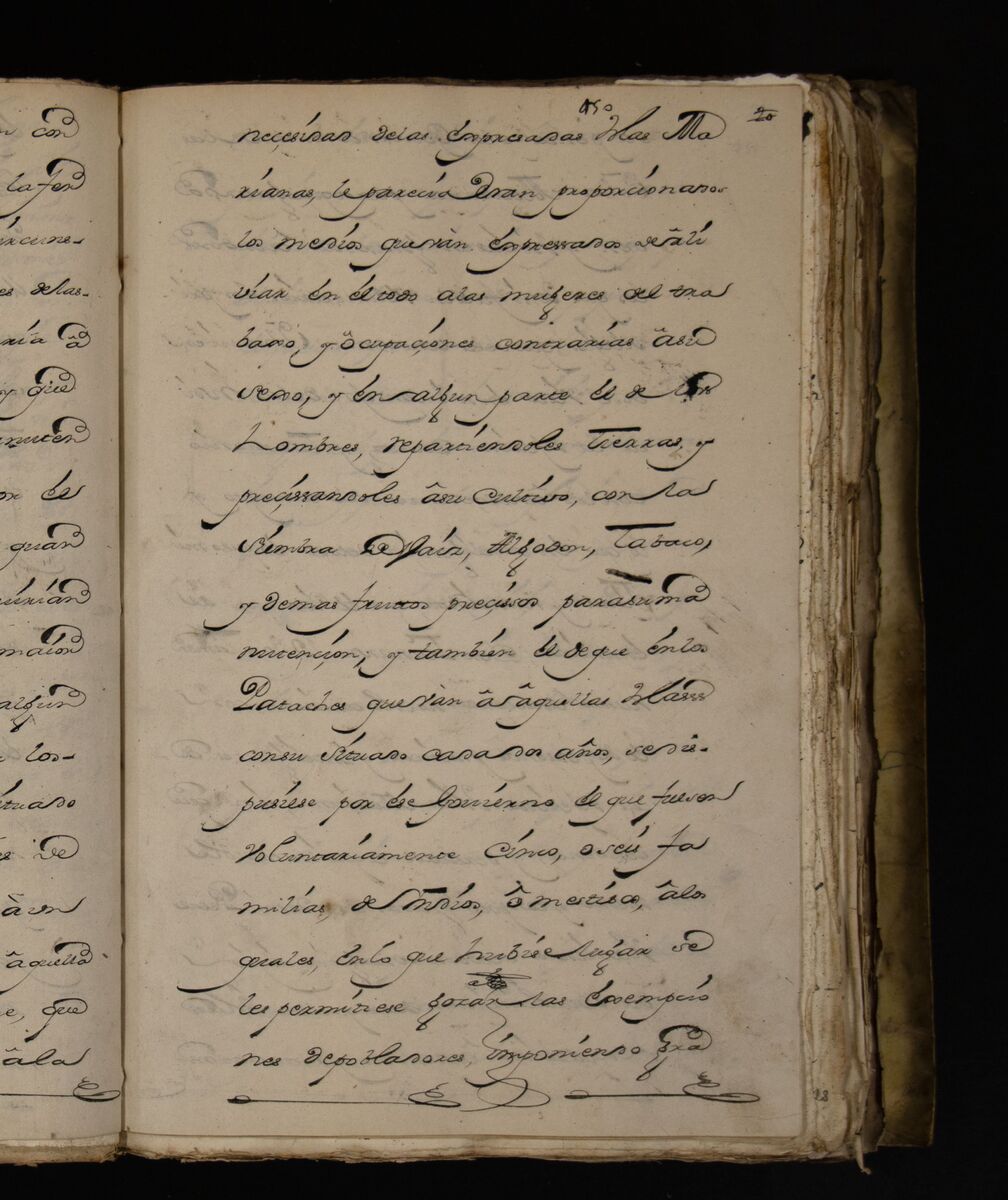 20
necçesidad delas expresadas Islas Ma
rianas, le parecia Eran proporcionados
los medios que ván expressados de âli
viar en él todo alas mugeres del tra
baxo, y ôcupaçiones contrarias âsu
sexo, y én algun parte él de los
hombres, repartiéndoles tierras, y
preçissandoles âsu cultivo, con la
siémbra de Maiz, Algodon, Tabaco,
y demas frutos preçissos parasu ma
nutençion; y también él de que én los
Pataches que ván â âquellas Islas
consu situado cada dos años, se dis-
pusiese por ése Goviérno él que fuesen
Voluntariamente Cinco, o seis fa
milias, de Indios, ô mestisos, âlos
quales, énlo que hubiése lugar se
les permitiese gozar las éxempcio
nes depobladores, imponiendo gra
n con
la fen
es delas-
ria â
y que
or de
quan
maior
algun
los-
ituado
de
â un
âquella
que
âla
18